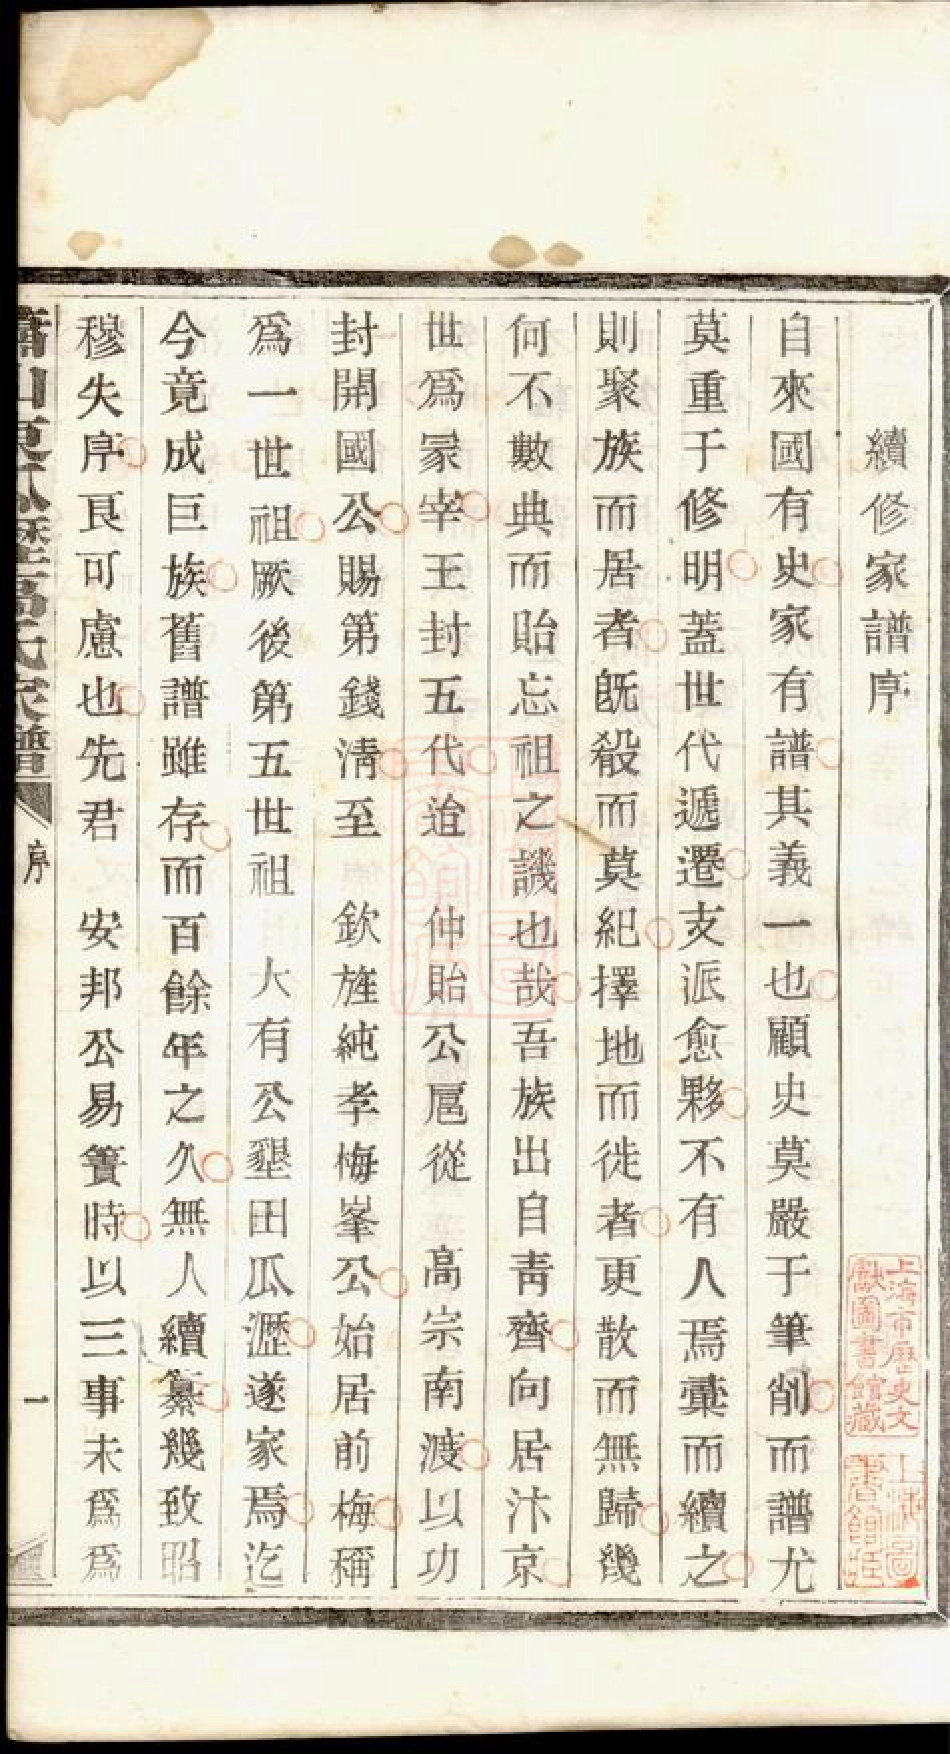 續修家譜序
自來國有史家有譜其義一也顧史莫嚴于筆削而譜尤
莫重于修明蓋世代遞遷支派愈夥不有人焉彚而續之
則聚族而居者旣殽而莫紀擇地而徙者更散而無歸幾
何不數典而貽忘祖之譏也哉吾族出自靑齊向居汴京
世爲冢宰王封五代迨 仲貽公扈從 高宗南渡以功
封開國公賜第錢淸至 欽旌純孝梅峯公始居前梅稱
爲一世祖厥後第五世祖 大有公墾田瓜瀝遂家焉迄
今竟成巨族舊譜雖存而百餘年之久無人續纂幾致昭
穆失序良可慮也先君 安邦公易簀時以三事未爲爲
氏家譜 序 一
上海市歷史文
獻圖書館藏